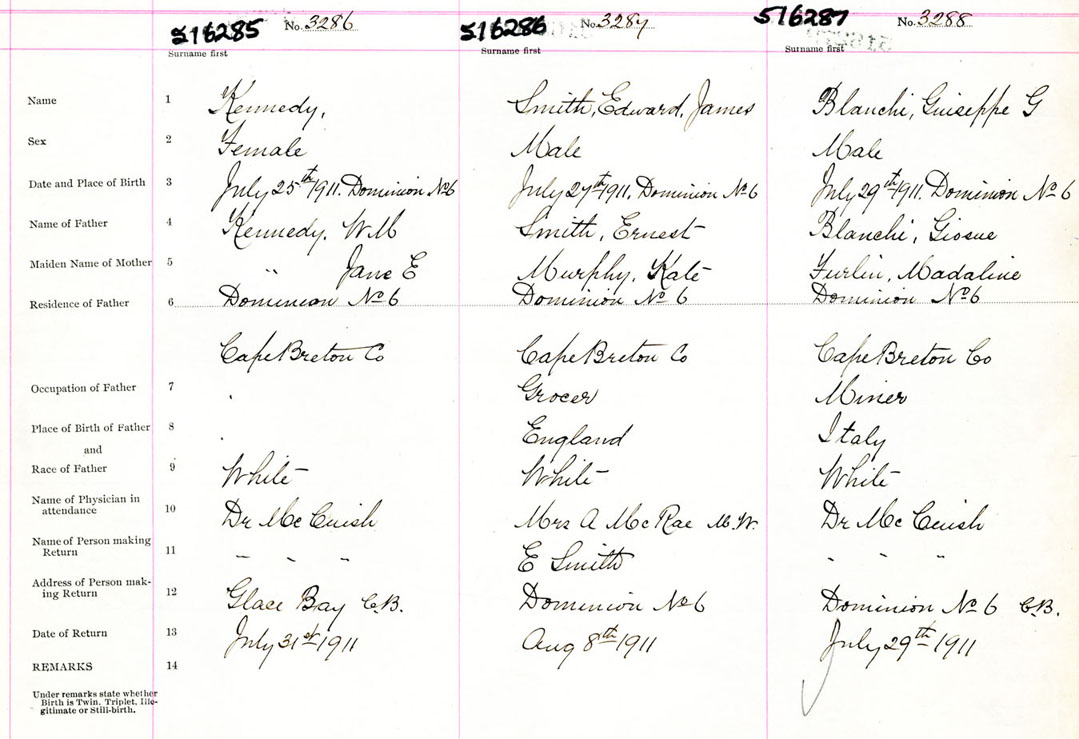 516285 No. 3286 516286 No. 3287 516287 No. 3288
Surname first Surname first Surname first
Name 1 Kennedy, Smith, Edward, James Blanchi, Guiseppe G
Sex 2 Female Male Male
Date and Place of Birth 3 July 25th 1911. Dominion No 6 July 27th 1911, Dominion No 6 July 29th 1911. Dominion No 6
Name of Father 4 Kennedy. W.M Smith, Ernest Blanchi, Giosue
Maiden Name of Mother 5 " Jane E Murphy, Kate Furlin, Madaline
Residence of Father 6 Dominion No 6 Dominion No 6 Dominion No 6
Cape Breton Co Cape Breton Co Cape Breton Co
Occupation of Father 7 Grocer Miner
Place of Birth of Father 8 England Italy
and
Race of Father 9 White White White
Name of Physician in
attendance 10 Dr Mc Cuish Mrs A McRae M.W. Dr Mc Cuish
Name of Person making
Return 11 " " " E Smith " " "
Address of Person mak-
ing Return 12 Glace Bay C.B. Dominion No 6 Dominion No 6 C.B.
Date of Return 13 July 31st 1911 Aug 8th 1911 July 29th 1911
REMARKS 14
Under remarks state whether
Birth is Twin. Triplet, Ille-
gitimate or Still-birth.